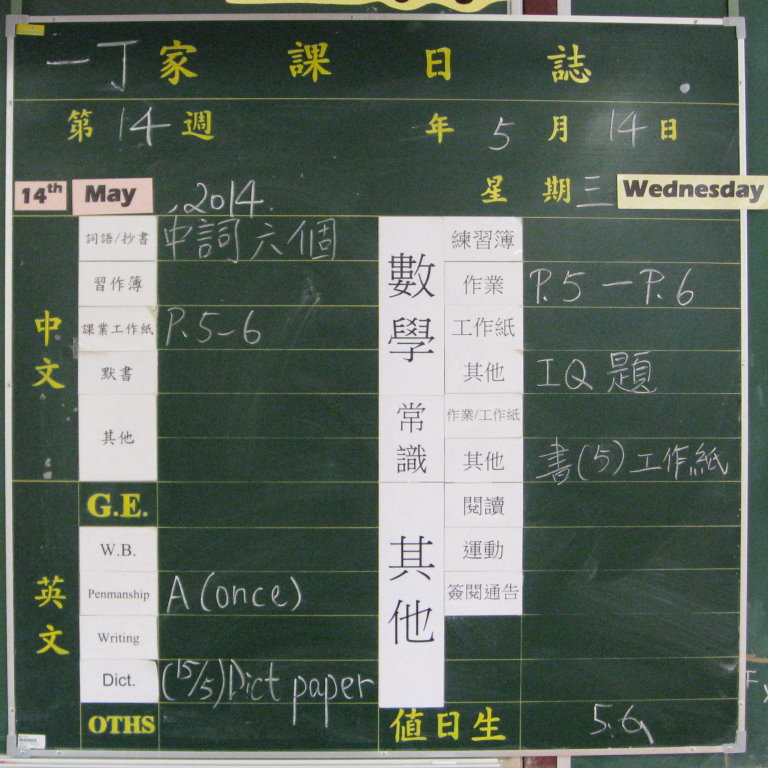 一丁家課日誌
第14週 年5月14日
14th May , 2014. 星期三 Wednesday
中文
詞語/抄書 中詞六個
習作簿
課業工作紙 P.5-6
默書
其他
英文
G.E.
W.B.
Penmanship A (once)
Writing
Dict. (15/5) Dict paper
OTHS
數學
練習簿
作業 P.5 - P.6
工作紙
其他 IQ題
常識
作業/工作紙
其他 書(5)工作紙
其他
閱讀
運動
簽閱通告
值日生 5.6